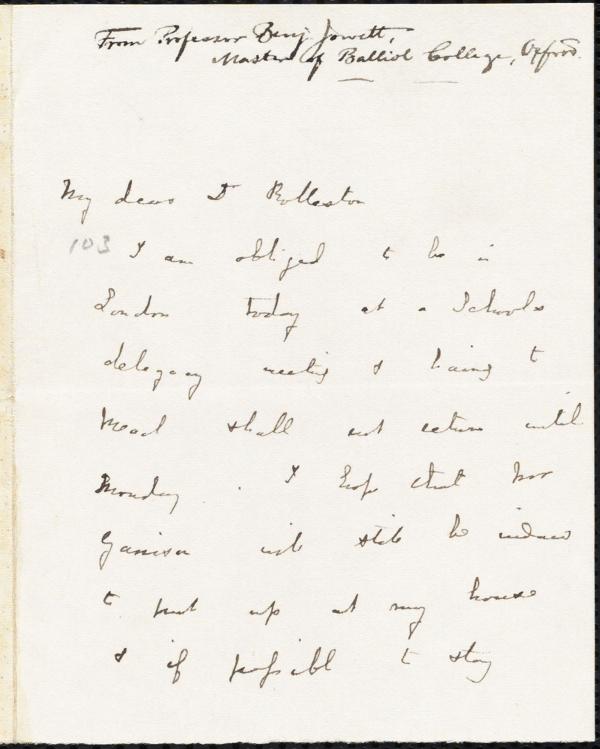 From Professor Benj Jowett,
Master of Balliol College, Oxford.
My dear Dr Rolleston
103
I am obliged to be in
London today at a Schools
delegacy meeting & having to
shall not return until
Monday. I hope that
will still be induced
to put up at my house
& if possible to stay